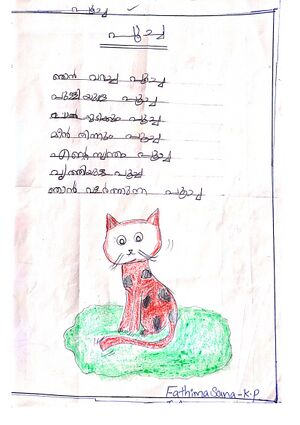 പൂച്ച
പൂച്ച
ഞാൻ വരച്ച പൂച്ച
പുള്ളിയുള്ള പൂച്ച
പൂച്ച
മീൻ തിന്നും പൂച്ച
എന്റെ സ്വന്തം പൂച്ച
വൃത്തിയുള്ള പൂച്ച
ഞാൻ വളർത്തുന്ന പൂച്ച
Fathima Sana - K.P